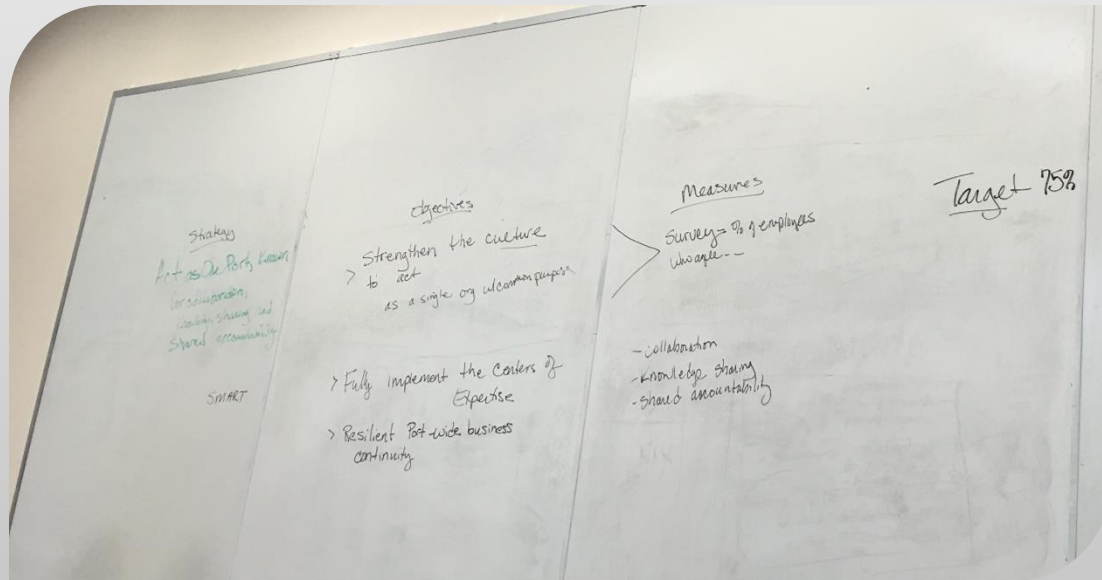 Strategy
Act as One Port, known
for collaboration,
knowledge sharing and
Shared accountability
SMART
Objectives
> Strengthen the culture
to act
as a single org w/common purpose
> Fully implement the Centers of
Expertise
> Resilient Port-wide business
continuity
Measures
Survey = % of employees
who agree - -
- collaboration
- Knowledge sharing
- Shared accountability
Target 75%